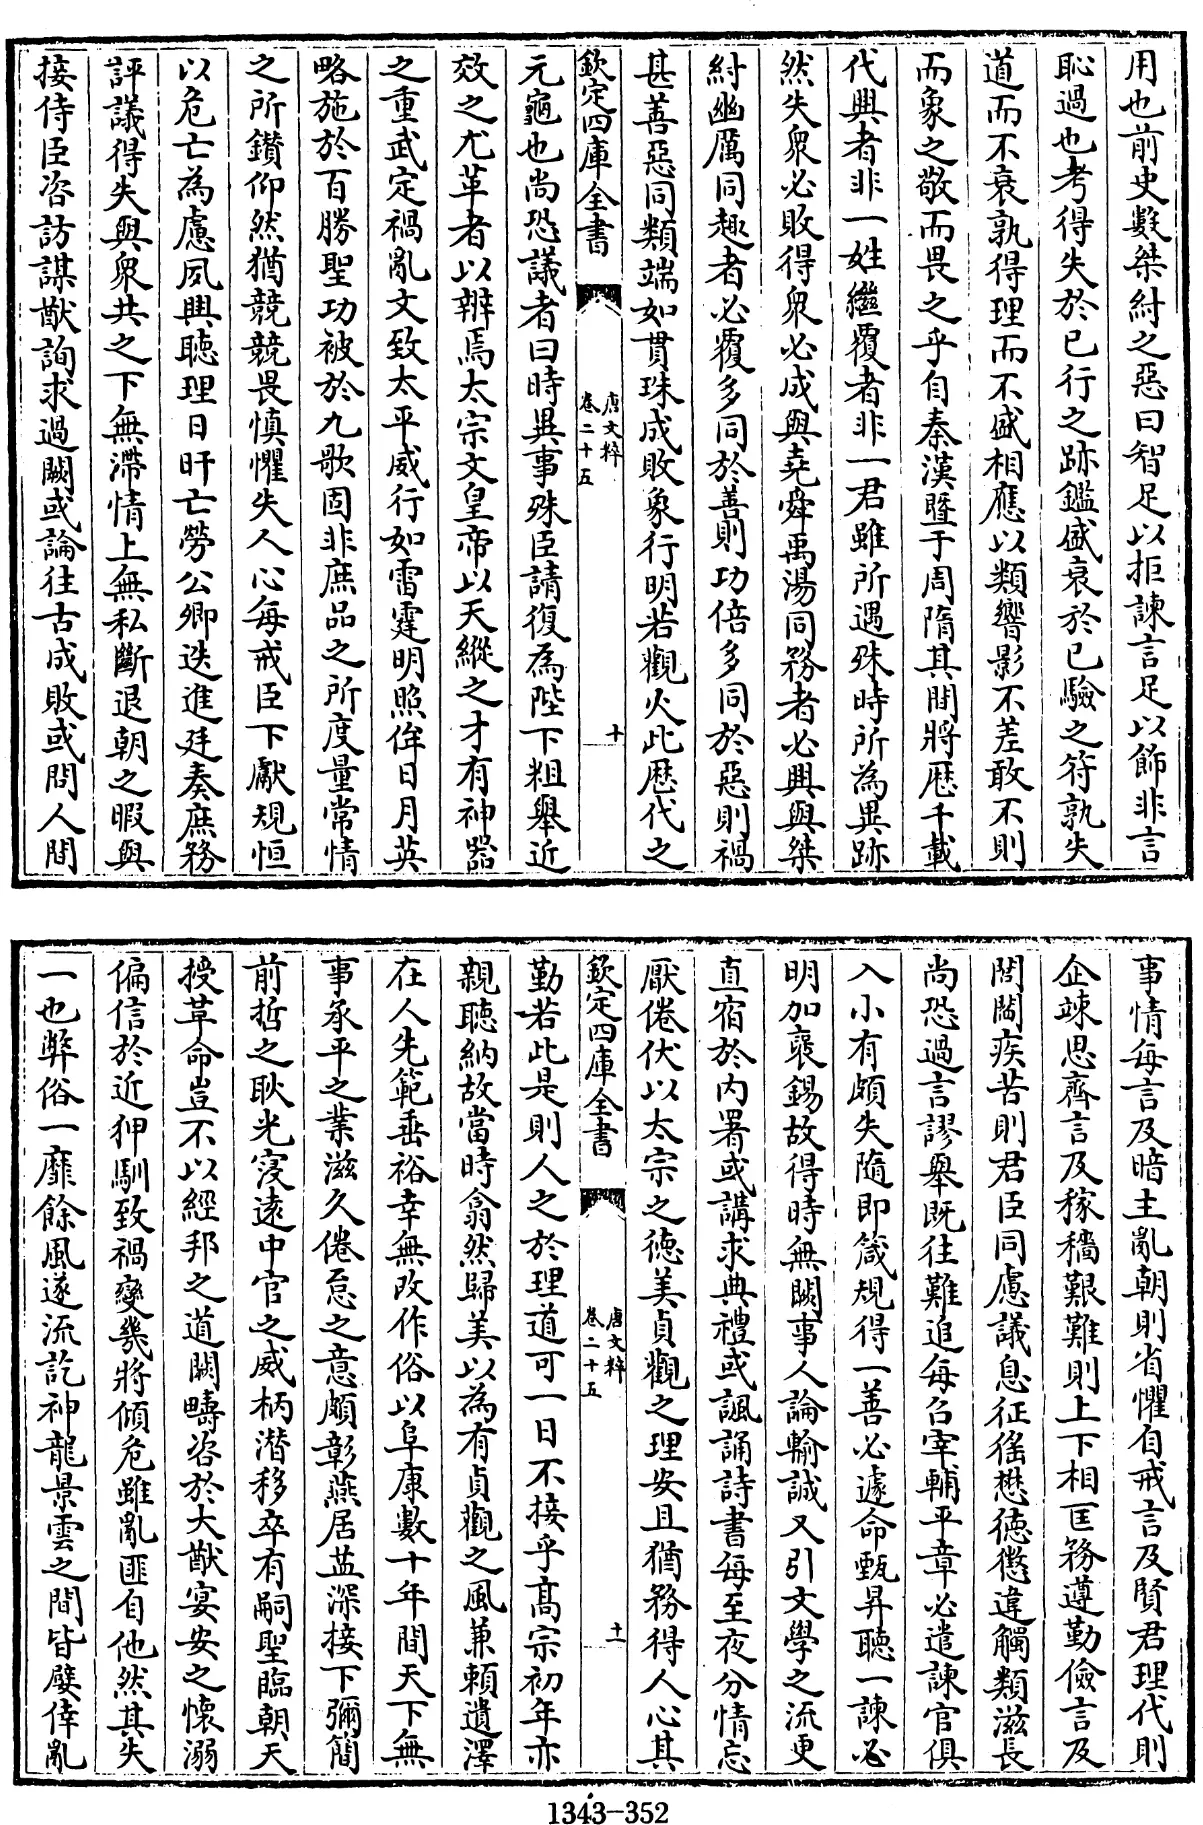 用也前史數桀紂之惡曰智足以拒諫言足以飾非言
恥過也考得失於已行之跡鑑盛衰於已驗之符孰失
道而不衰孰得理而不盛相應以類響影不差敢不則
而象之敬而畏之乎自秦漢暨于周隋其間將歷千載
代興者非一姓繼覆者非一君雖所遇殊時所為異跡
然失衆必敗得衆必成與堯舜禹湯同務者必興與桀
紂幽厲同趣者必覆多同於善則功倍多同於惡則禍
甚善惡同類端如貫珠成敗象行明若觀火此歷代之
欽定四庫全書
唐文粹
卷二十五
十
元龜也尚恐議者曰時異事殊臣請復為陛下粗舉近
效之尤革者以辨焉太宗文皇帝以天縱之才有神器
之重武定禍亂文致太平威行如雷霆明照侔日月英
略施於百勝聖功被於九歌固非庶品之所度量常情
之所鑽仰然猶競競畏慎懼失人心每戒臣下獻規恒
以危亡為慮夙興聽理日旰亡勞公卿迭進廷奏庶務
評議得失與衆共之下無滯情上無私斷退朝之暇與
接侍臣咨訪謀猷詢求過闕或論往古成敗或問人間
事情每言及暗主亂朝則省懼自戒言及賢君理代則
企竦思齊言及稼穡艱難則上下相匡務遵勤儉言及
閭閻疾苦則君臣同慮議息征徭懋德懲違觸類滋長
尚恐過言謬舉既往難追每召宰輔平章必遣諫官俱
入小有頗失隨即箴規得一善必遽命甄昇聽一諫必
明加褒錫故得時無闕事人論輸誠又引文學之流更
直宿於內署或講求典禮或諷誦詩書每至夜分情忘
厭倦伏以太宗之德美貞觀之理安且猶務得人心其
欽定四庫全書
唐文粹
卷二十五
十一
勤若此是則人之於理道可一日不接乎髙宗初年亦
親聽納故當時翕然歸美以為有貞觀之風兼賴遺澤
在人先範垂裕幸無改作俗以阜康數十年間天下無
事承平之業滋久倦怠之意頗彰燕居益深接下彌簡
前哲之耿光寖遠中官之威柄潛移卒有嗣聖臨朝天
授革命豈不以經邦之道闕疇咨於大猷宴安之懷溺
偏信於近狎馴致禍變幾將傾危雖亂匪自他然其失
一也弊俗一靡餘風遂流訖神龍景雲之間皆嬖倖亂
1343-352